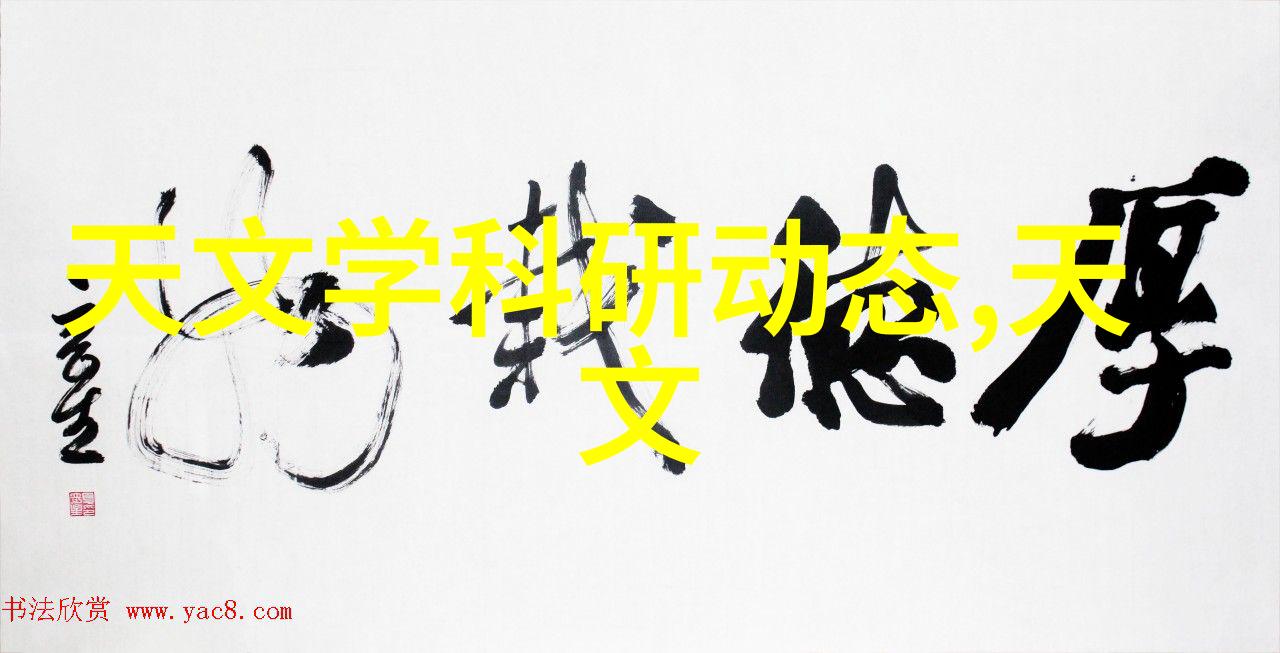 天文学科研动态,天
文
厚德載物
书法欣赏 www.yac8.com